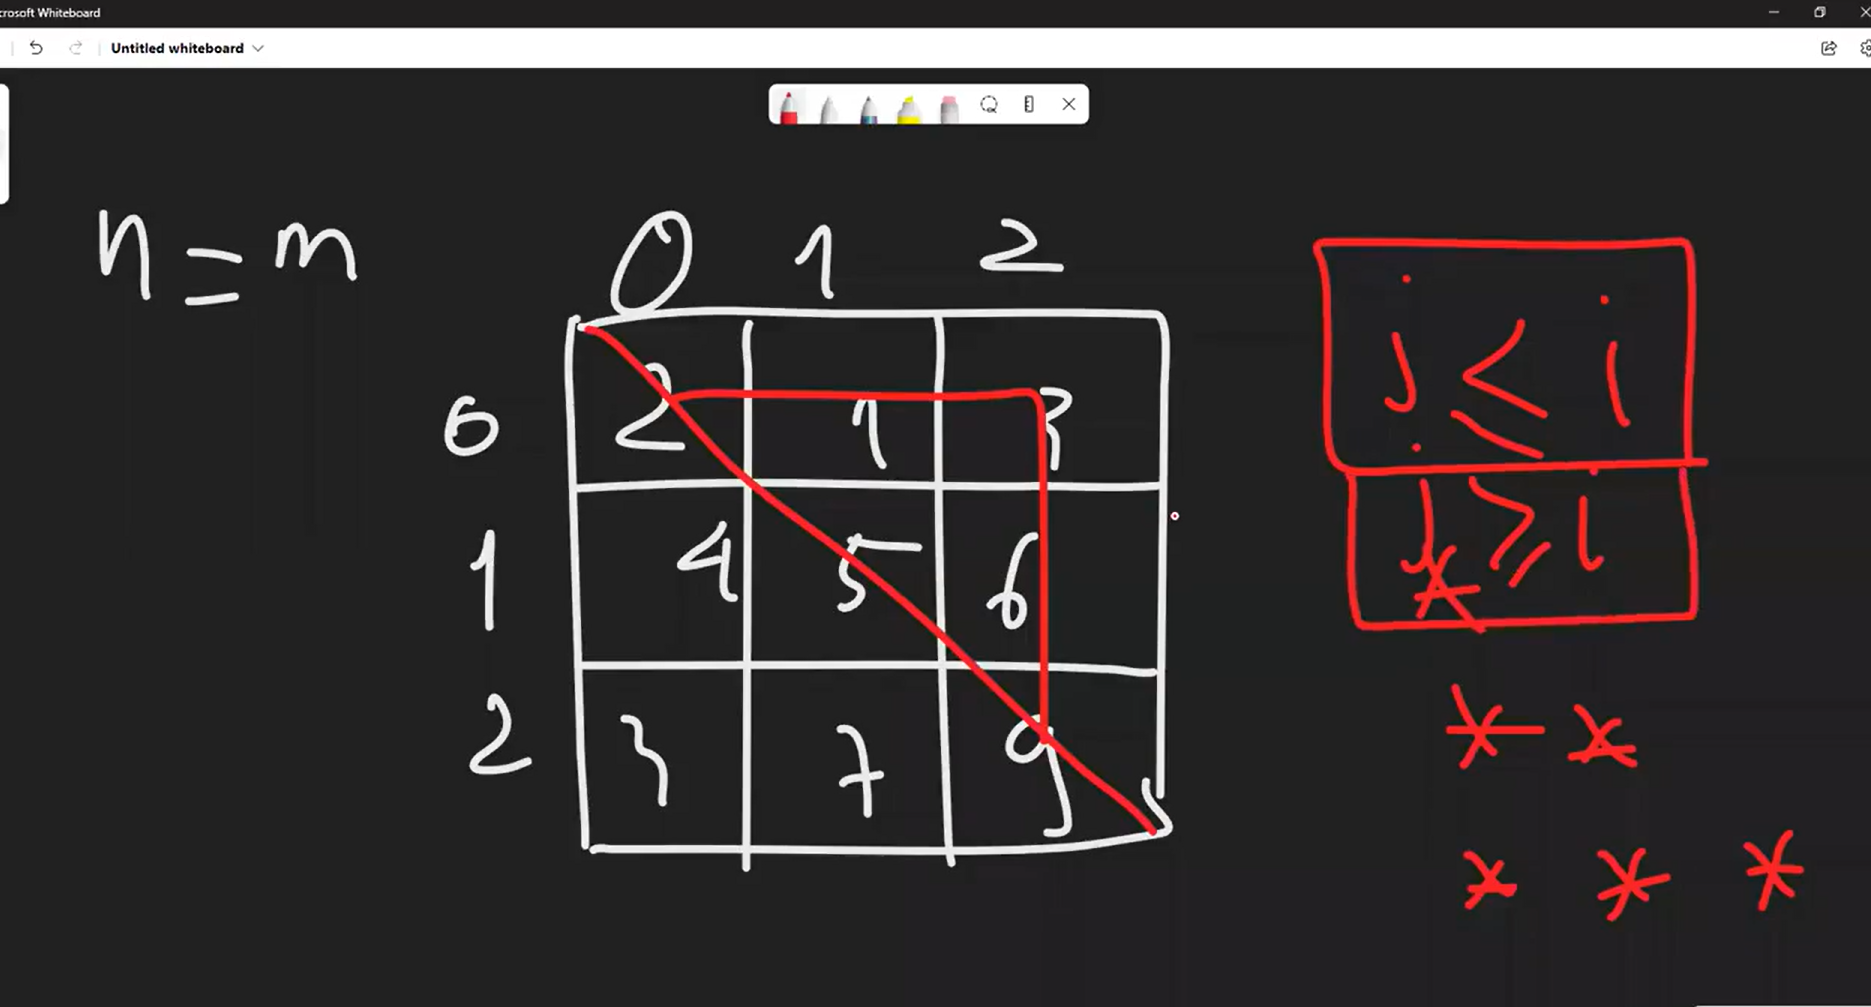 crosoft Whiteboard
Untitled whiteboard
n = m
0 1 2
0 2 1 3
1 4 5 6
2 3 7 9
j ≤ i
j ≥ i
*
* *
* * *